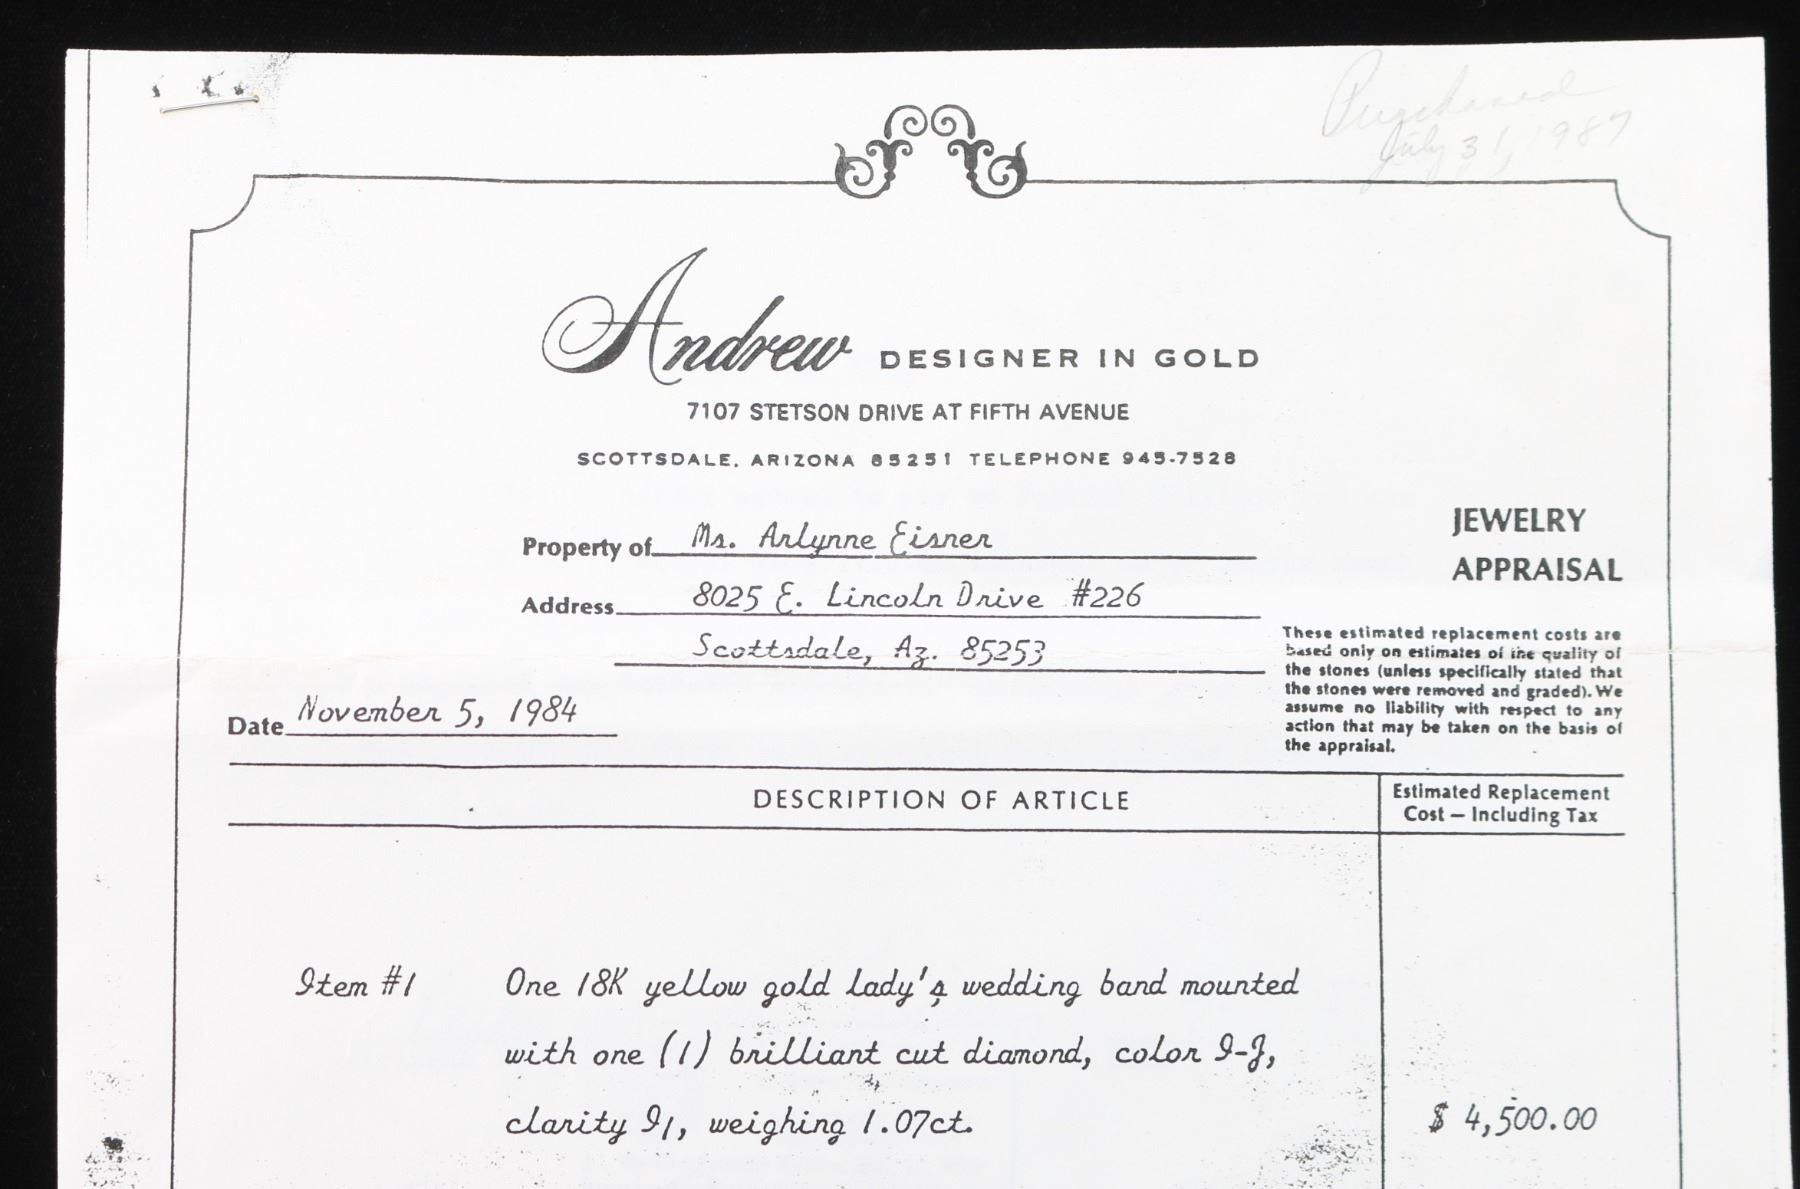 Purchased
July 31, 1987
Andrew DESIGNER IN GOLD
7107 STETSON DRIVE AT FIFTH AVENUE
SCOTTSDALE, ARIZONA 85251 TELEPHONE 945-7528
JEWELRY
APPRAISAL
Property of Ms. Arlynne Eisner
Address 8025 E. Lincoln Drive #226
Scottsdale, Az. 85253
These estimated replacement costs are
based only on estimates of the quality of
the stones (unless specifically stated that
the stones were removed and graded). We
assume no liability with respect to any
action that may be taken on the basis of
the appraisal.
Date November 5, 1984
DESCRIPTION OF ARTICLE
Estimated Replacement
Cost — Including Tax
Item #1 One 18K yellow gold lady's wedding band mounted
with one (1) brilliant cut diamond, color I-J,
clarity I1, weighing 1.07ct. $ 4,500.00